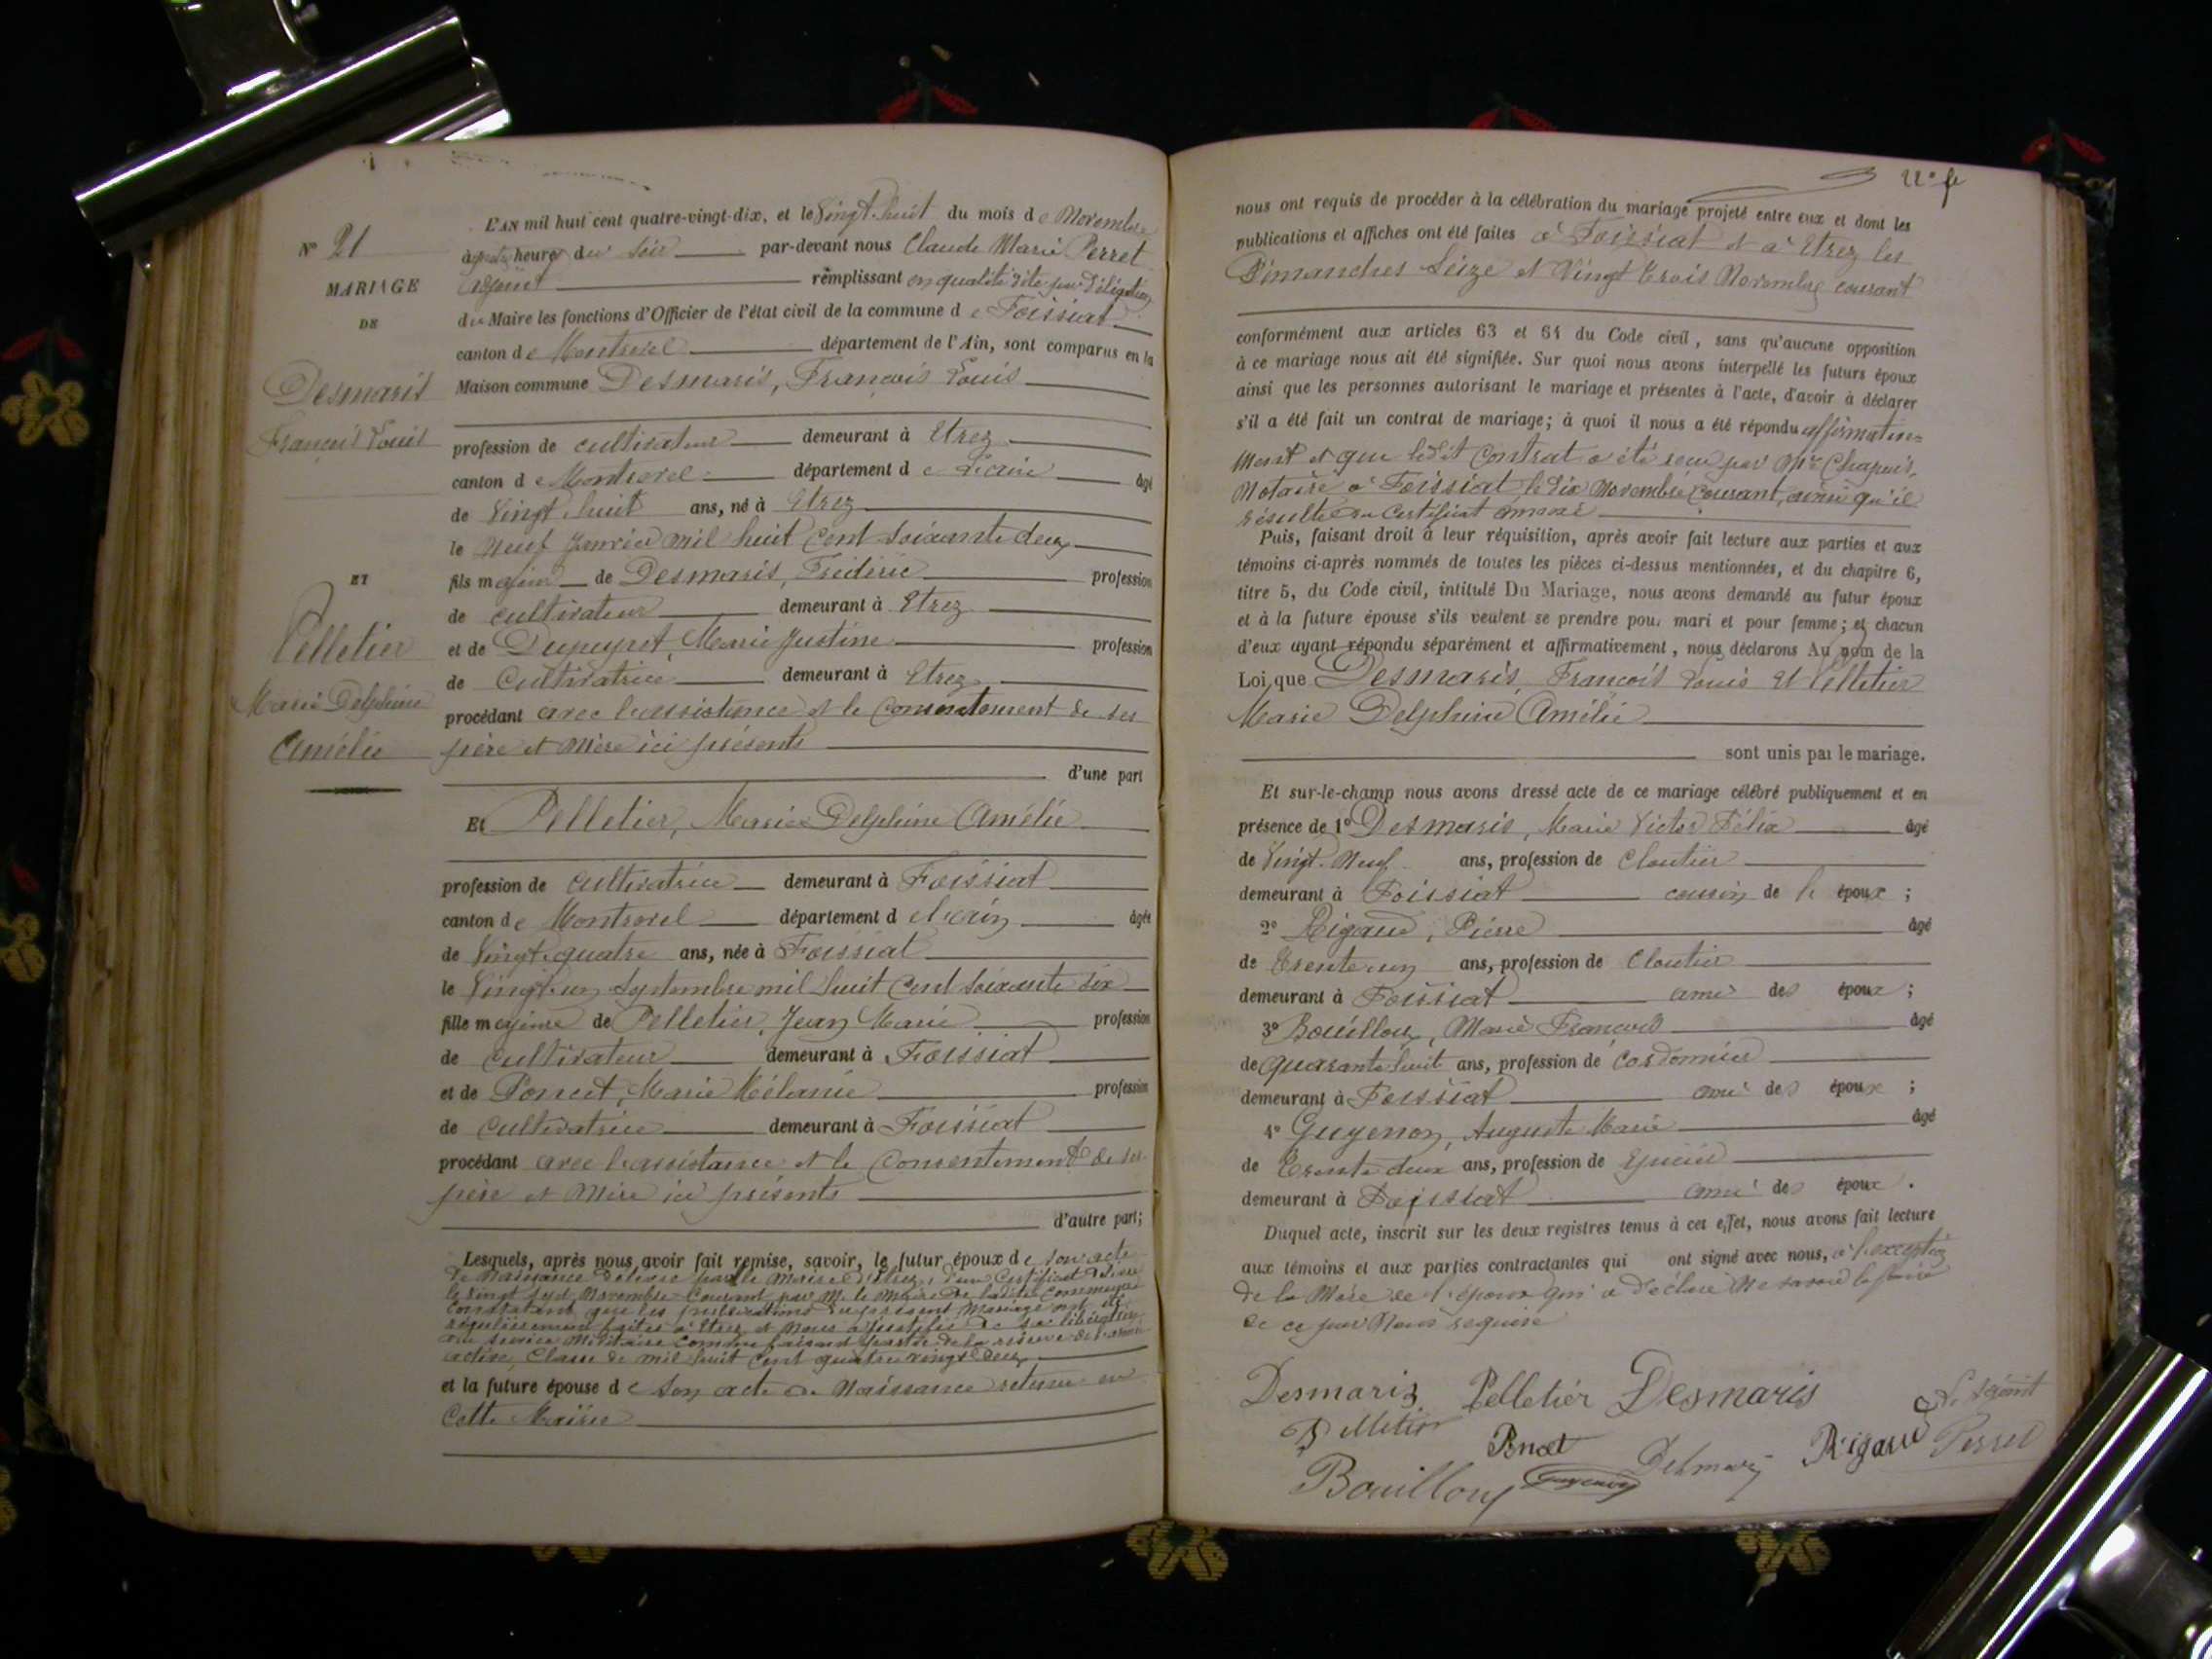 N° 21
MARIAGE
DE
Desmaris
François Louis
ET
Pelletier
Marie Delphine
Amélie
L'AN mil huit cent quatre-vingt-dix, et le Vingt-huit du mois de Novembre
à heures du Soir par-devant nous Claude Marie Perret
adjoint remplissant en qualité dite par délégation
du Maire les fonctions d'Officier de l'état civil de la commune de Foissiat
canton de Montrevel département de l'Ain, sont comparus en la
Maison commune Desmaris, François Louis
profession de cultivateur demeurant à Etrez
canton de Montrevel département de L'ain âgé
de Vingt huit ans, né à Etrez
le Neuf Janvier mil huit Cent Soixante deux
fils majeur de Desmaris, Fréderic profession
de cultivateur demeurant à Etrez
et de Dupuyret, Marie Justine profession
de Cultivatrice demeurant à Etrez
procédant avec l'assistance et le Consentement de ses
père et Mère ici présents
d'une part
Et Pelletier, Marie Delphine Amélie
profession de Cultivatrice demeurant à Foissiat
canton de Montrevel département de L'ain âgée
de Vingt-quatre ans, née à Foissiat
le Vingt-un Septembre mil huit Cent Soixante six
fille majeure de Pelletier, Jean Marie profession
de Cultivateur demeurant à Foissiat
et de Poncet, Marie Mélanie profession
de Cultivatrice demeurant à Foissiat
procédant avec l'assistance et le Consentement de ses
père et Mère ici présents
d'autre part;
Lesquels, après nous avoir fait remise, savoir, le futur époux de son acte
de Naissance délivré par le Maire d'Etrez, d'un Certificat délivré
le Vingt sept Novembre Courant par M. le Maire de ladite Commune
Constatant que les publications du présent Mariage ont été
régulièrement faites à Etrez et Nous a justifié de sa libération
du service Militaire comme faisant partie de la réserve de l'armée
active Classe de mil huit Cent quatre vingt deux
et la future épouse de son acte de Naissance retenu en
Cette Mairie
nous ont requis de procéder à la célébration du mariage projeté entre eux et dont les
publications et affiches ont été faites à Foissiat et à Etrez les
Dimanches Seize et Vingt trois Novembre courant
conformément aux articles 63 et 64 du Code civil, sans qu'aucune opposition
à ce mariage nous ait été signifiée. Sur quoi nous avons interpellé les futurs époux
ainsi que les personnes autorisant le mariage et présentes à l'acte, d'avoir à déclarer
s'il a été fait un contrat de mariage; à quoi il nous a été répondu affirmative=
ment et que ledit Contrat a été reçu par Me Chapuis,
Notaire à Foissiat le dix Novembre Courant, ainsi qu'il
résulte du Certificat annexé
Puis, faisant droit à leur réquisition, après avoir fait lecture aux parties et aux
témoins ci-après nommés de toutes les pièces ci-dessus mentionnées, et du chapitre 6,
titre 5, du Code civil, intitulé Du Mariage, nous avons demandé au futur époux
et à la future épouse s'ils veulent se prendre pour mari et pour femme; et chacun
d'eux ayant répondu séparément et affirmativement, nous déclarons Au nom de la
Loi, que Desmaris, François Louis et Pelletier
Marie Delphine Amélie
sont unis par le mariage.
Et sur-le-champ nous avons dressé acte de ce mariage célébré publiquement et en
présence de 1° Desmaris, Marie Victor Félix âgé
de Vingt-Neuf ans, profession de Cloutier
demeurant à Foissiat cousin de l' époux ;
2° Rigaud, Pierre âgé
de Trente-un ans, profession de Cloutier
demeurant à Foissiat ami des époux ;
3° Bouillon, Marie François âgé
de quarante huit ans, profession de Cordonnier
demeurant à Foissiat ami des époux ;
4° Guyenon, Auguste Marie âgé
de Trente deux ans, profession de Epicier
demeurant à Foissiat ami des époux.
Duquel acte, inscrit sur les deux registres tenus à cet effet, nous avons fait lecture
aux témoins et aux parties contractantes qui ont signé avec nous, à l'exception
de la Mère de l'époux qui a déclaré Ne savoir le faire
de ce par Nous requise
Desmaris Pelletier Desmaris L'adjoint
Pelletier Poncet Desmaris Rigaud Perret
Bouillon Guyenon